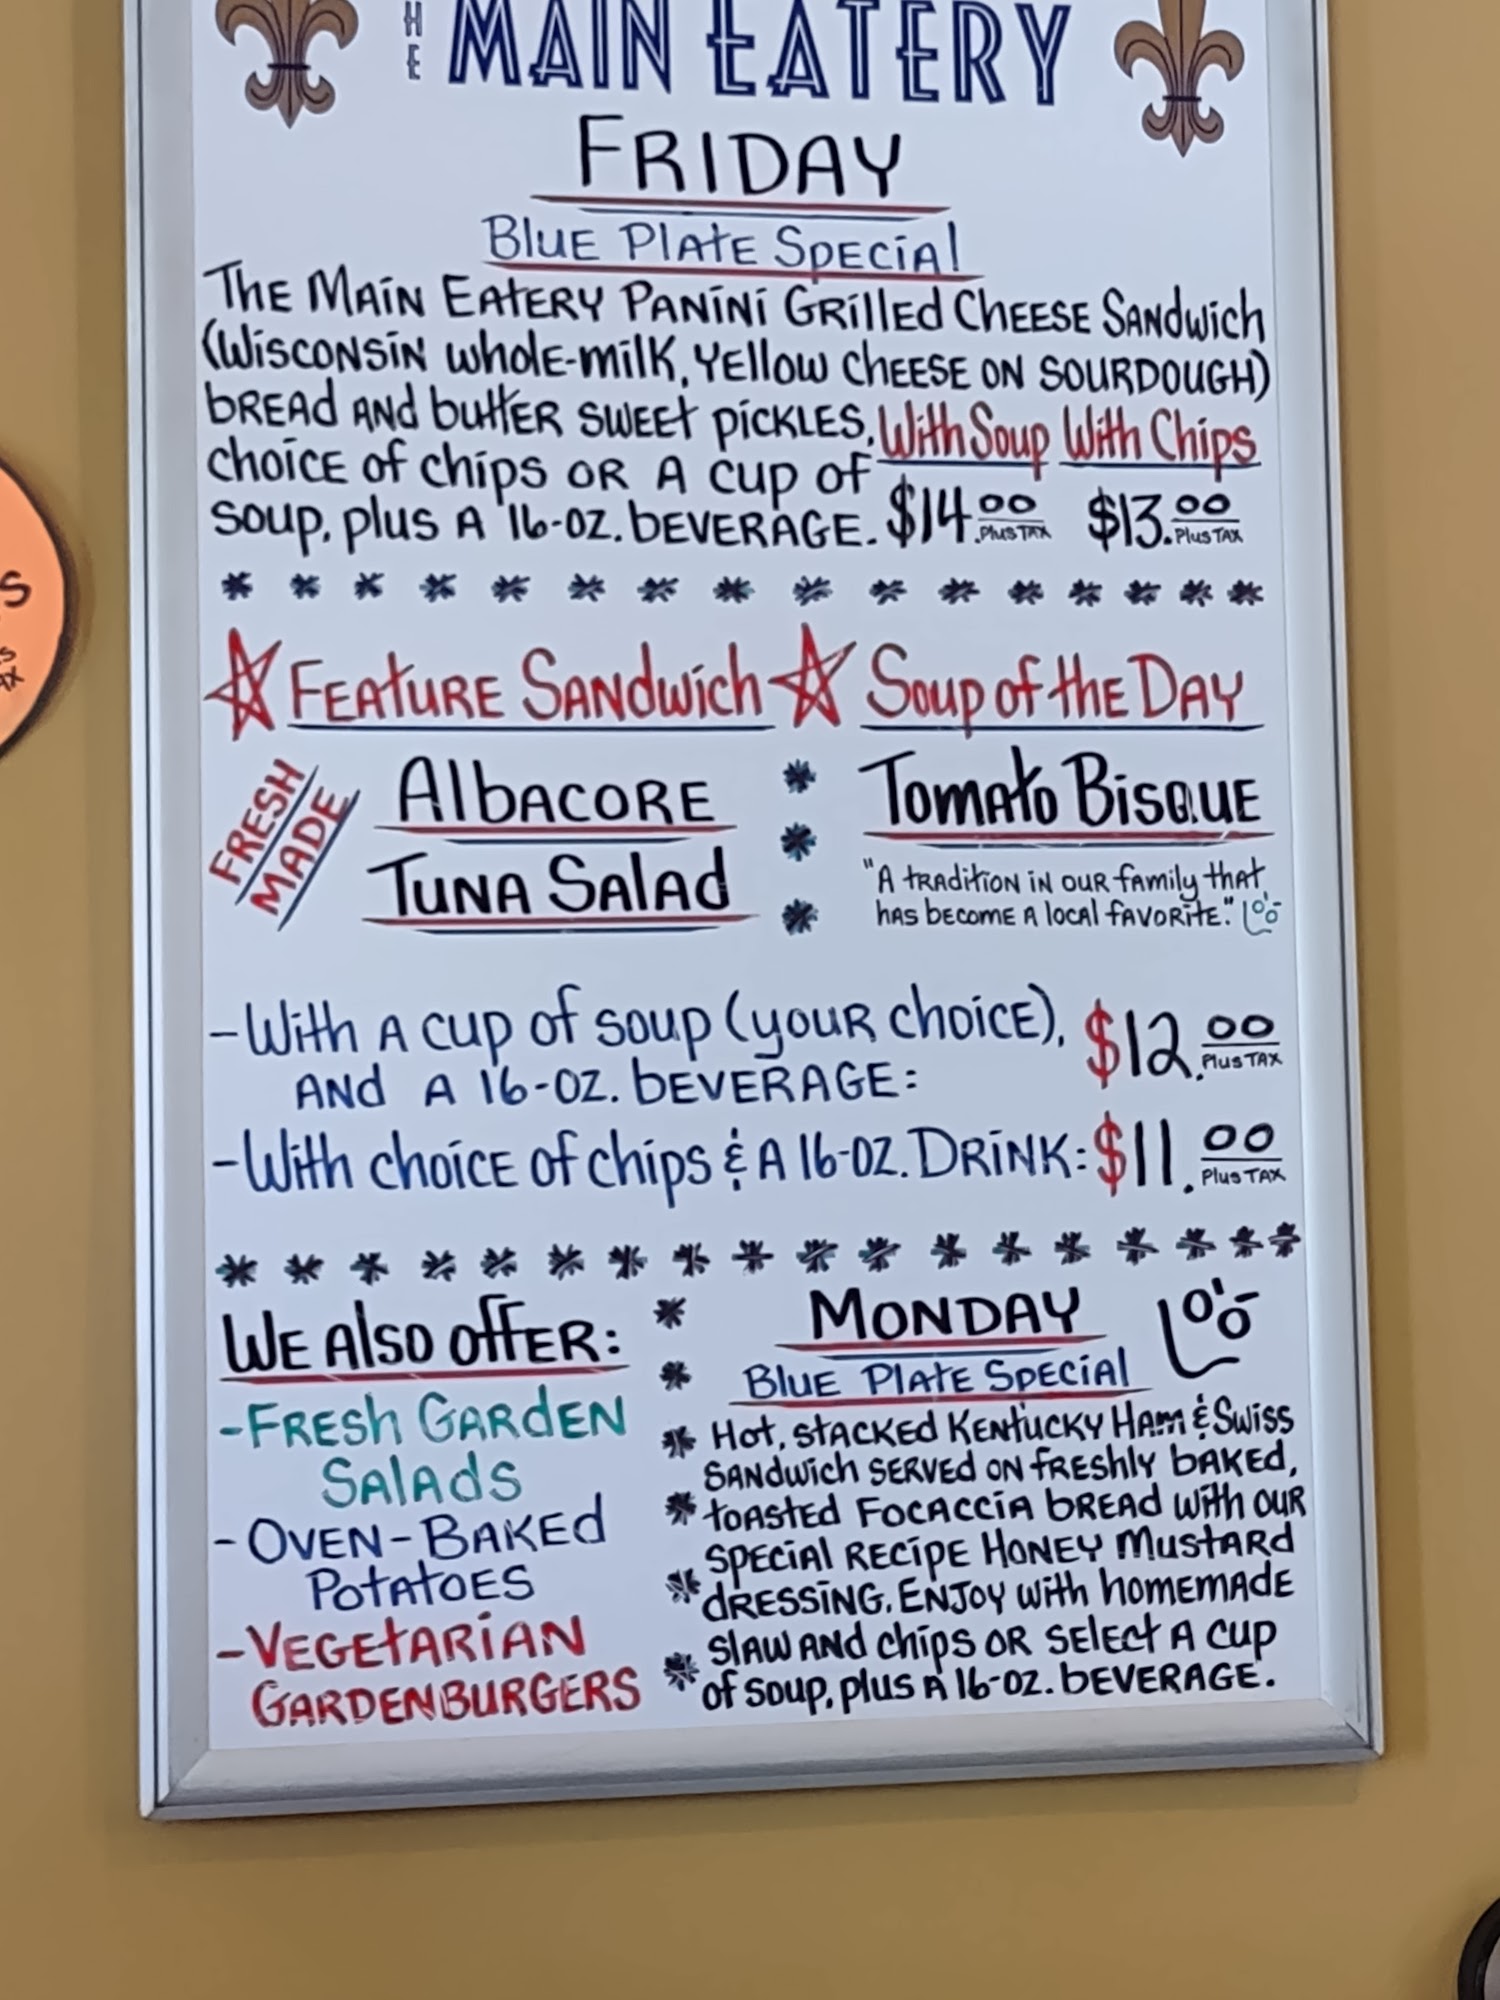 THE MAIN EATERY
FRIDAY
Blue Plate Special
The Main Eatery Panini Grilled Cheese Sandwich
(Wisconsin whole-milk, yellow cheese on sourdough)
bread and butter sweet pickles,
choice of chips or a cup of
soup, plus a 16-oz. beverage.
With Soup With Chips
$14.00 Plus Tax $13.00 Plus Tax
* * * * * * * * * * * * * * * *
☆ Feature Sandwich ☆ Soup of the Day
FRESH
MADE
Albacore
Tuna Salad
*
*
*
Tomato Bisque
"A tradition in our family that
has become a local favorite."
- With a cup of soup (your choice),
and a 16-oz. beverage: $12.00 Plus Tax
- With choice of chips & a 16-oz. Drink: $11.00 Plus Tax
* * * * * * * * * * * * * * * * * *
We Also offer:
- Fresh Garden
Salads
- Oven-Baked
Potatoes
- Vegetarian
Gardenburgers
*
*
*
*
*
*
MONDAY
Blue Plate Special
Hot, stacked Kentucky Ham & Swiss
sandwich served on freshly baked,
toasted Focaccia bread with our
special recipe Honey Mustard
dressing. Enjoy with homemade
slaw and chips or select a cup
of soup, plus a 16-oz. beverage.